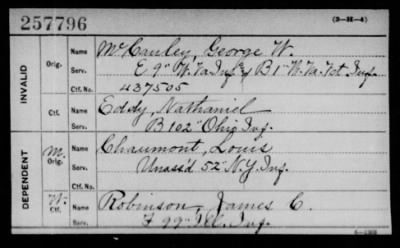 257796
(3-H-4)
INVALID
Orig.
Name McCauley, George W.
Serv. E 9" W. Va Inf. & B 1" W. Va. Vet. Inf.
Ctf. No. 437505
Ctf.
Name Eddy, Nathaniel
Serv. B 102" Ohio Inf.
DEPENDENT
M. Orig.
Name Chaumont, Louis
Serv. Unass'd 52" N.Y. Inf.
Ctf. No.
W. Ctf.
Name Robinson, James C.
Serv. F 99" Ill. Inf.